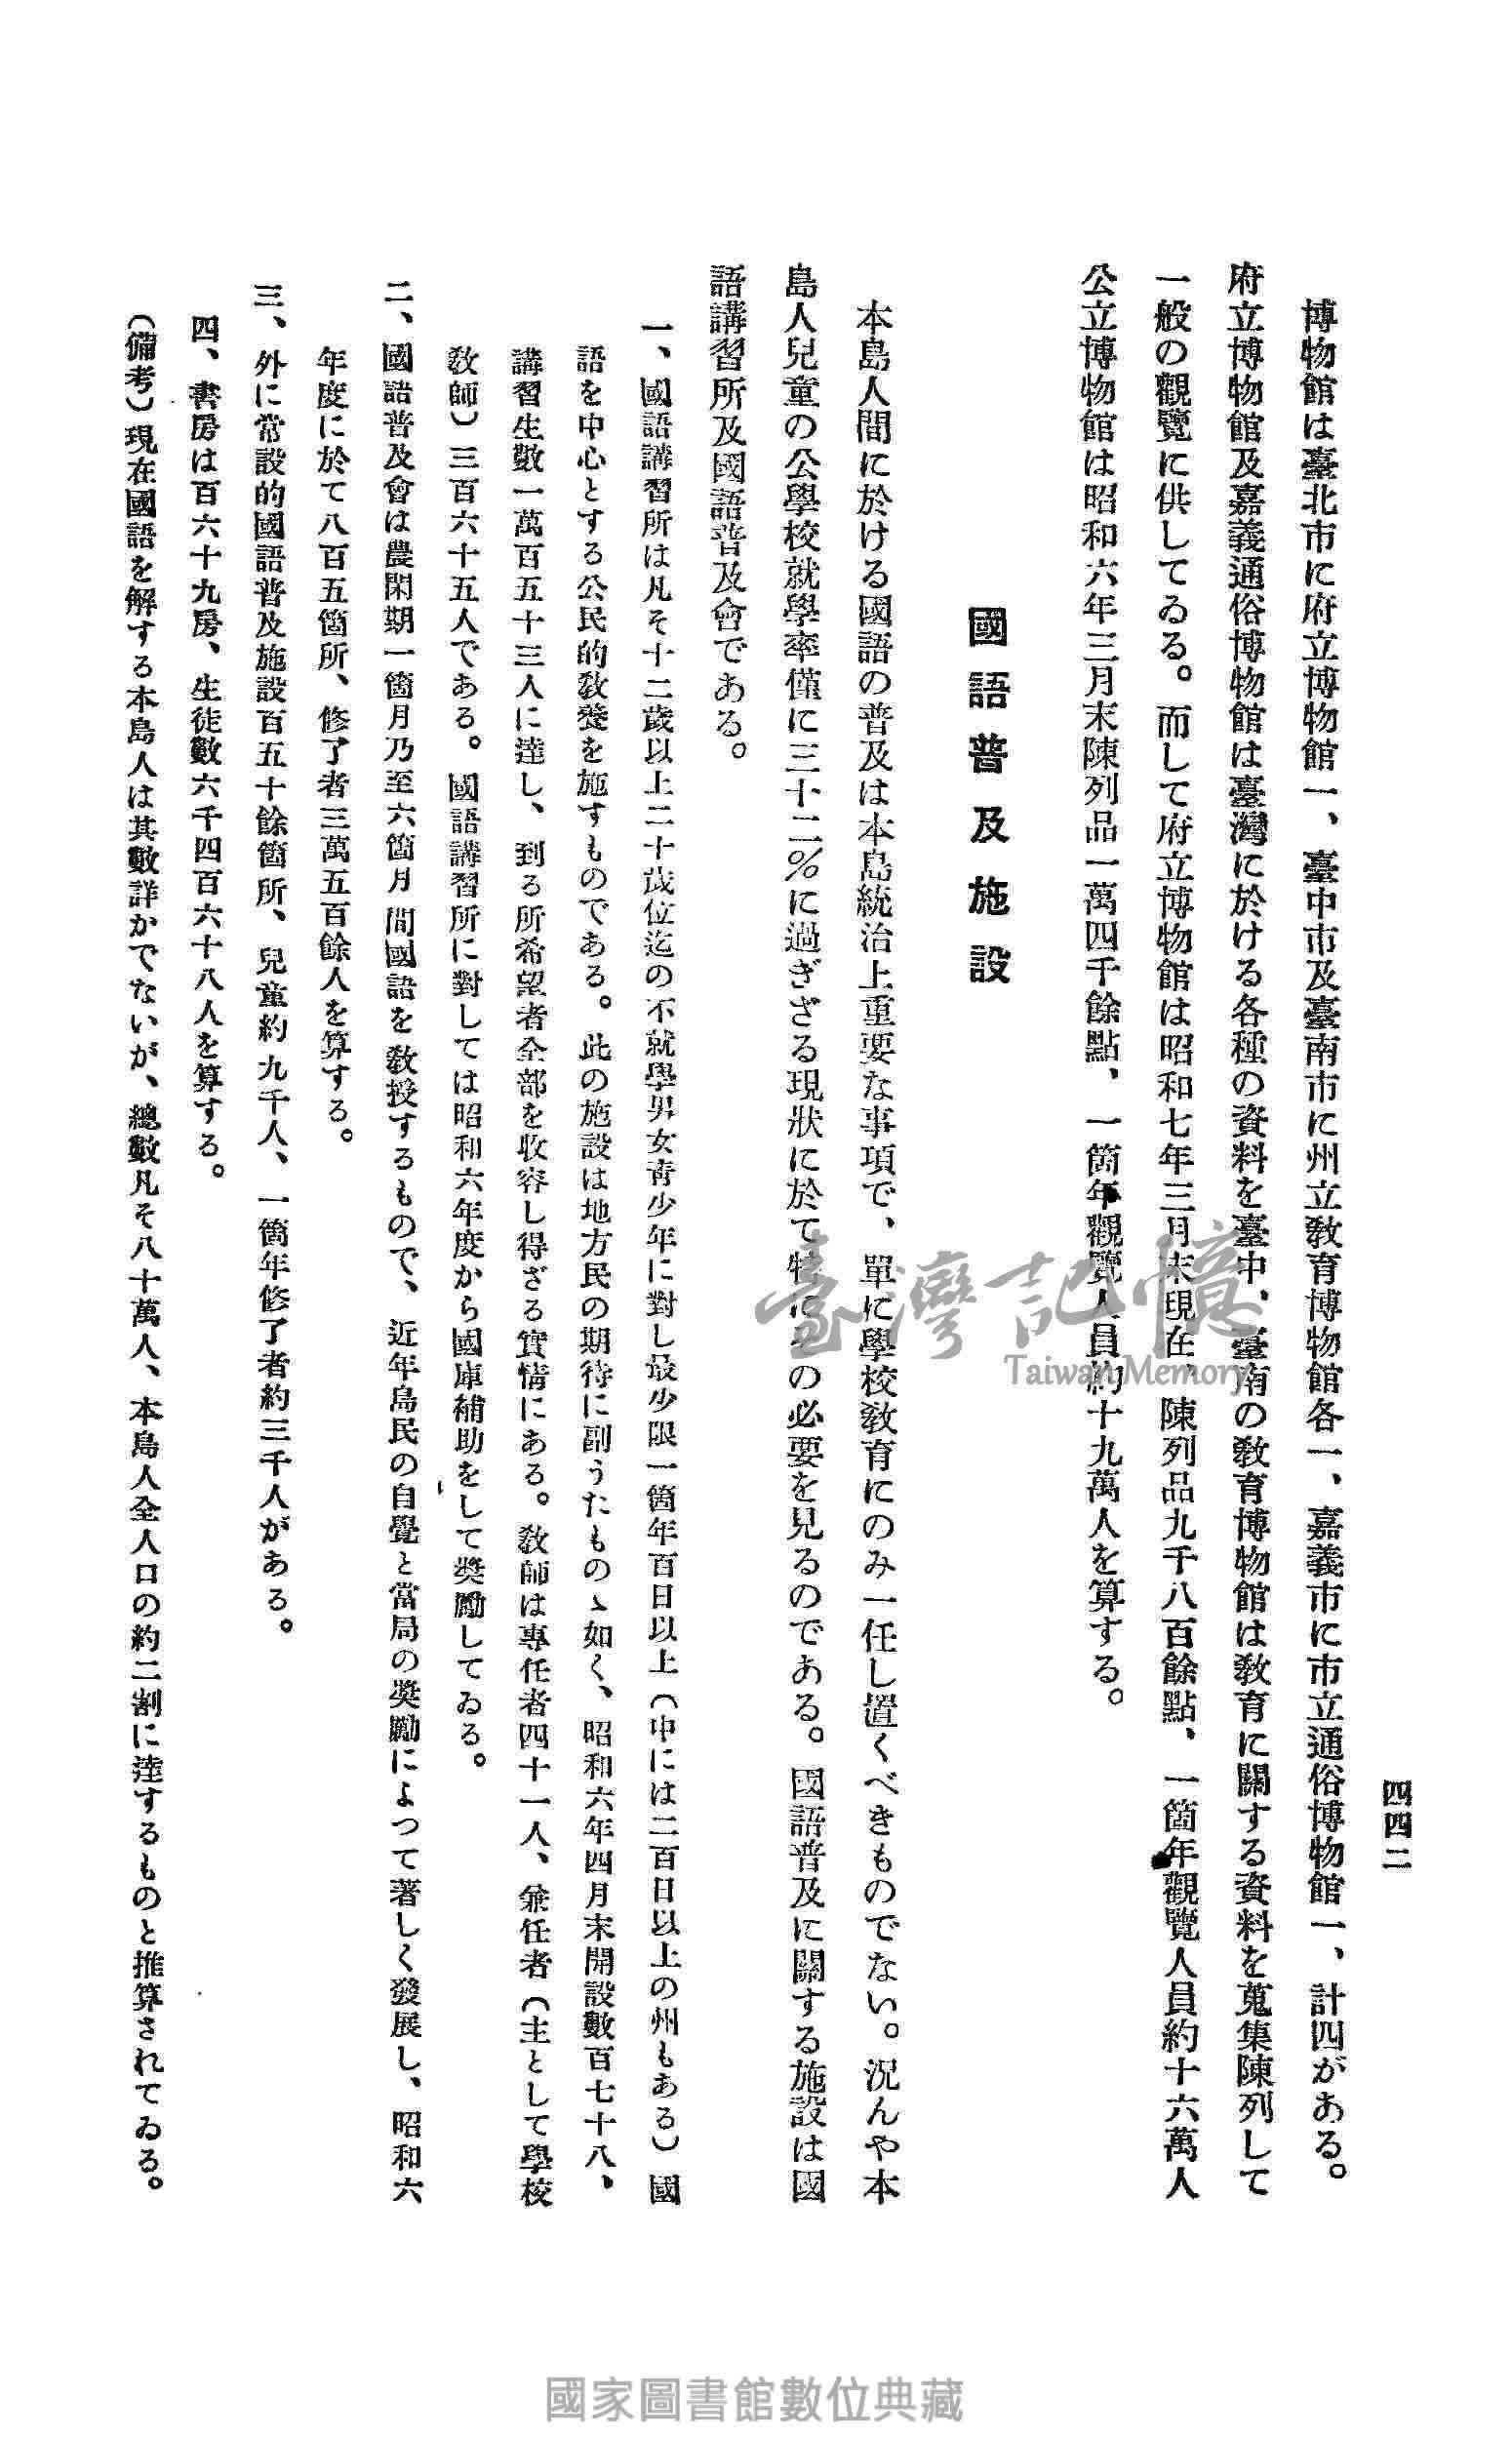 四四二
博物館は臺北市に府立博物館一、臺中市及臺南市に州立敎育博物館各一、嘉義市に市立通俗博物館一、計四がある。
府立博物館及嘉義通俗博物館は臺灣に於ける各種の資料を臺中、臺南の敎育博物館は敎育に關する資料を蒐集陳列して
一般の觀覽に供してゐる。而して府立博物館は昭和七年三月末現在、陳列品九千八百餘點、一箇年觀覽人員約十六萬人
公立博物館は昭和六年三月末陳列品一萬四千餘點、一箇年觀覽人員約十九萬人を算する。
國語普及施設
本島人間に於ける國語の普及は本島統治上重要な事項で、單に學校敎育にのみ一任し置くべきものでない。況んや本
島人兒童の公學校就學率僅に三十二%に過ぎざる現狀に於て特にその必要を見るのである。國語普及に關する施設は國
語講習所及國語普及會である。
一、國語講習所は凡そ十二歲以上二十歲位迄の不就學男女靑少年に對し最少限一箇年百日以上（中には二百日以上の州もある）國
語を中心とする公民的敎養を施すものである。此の施設は地方民の期待に副うたものゝ如く、昭和六年四月末開設數百七十八、
講習生數一萬百五十三人に達し、到る所希望者全部を收容し得ざる實情にある。敎師は專任者四十一人、兼任者（主として學校
敎師）三百六十五人である。國語講習所に對しては昭和六年度から國庫補助をして奬勵してゐる。
二、國語普及會は農閑期一箇月乃至六箇月間國語を敎授するもので、近年島民の自覺と當局の奬勵によつて著しく發展し、昭和六
年度に於て八百五箇所、修了者三萬五百餘人を算する。
三、外に常設的國語普及施設百五十餘箇所、兒童約九千人、一箇年修了者約三千人がある。
四、書房は百六十九房、生徒數六千四百六十八人を算する。
（備考）現在國語を解する本島人は其數詳かでないが、總數凡そ八十萬人、本島人全人口の約二割に達するものと推算されてゐる。
臺灣記憶
Taiwan Memory
國家圖書館數位典藏